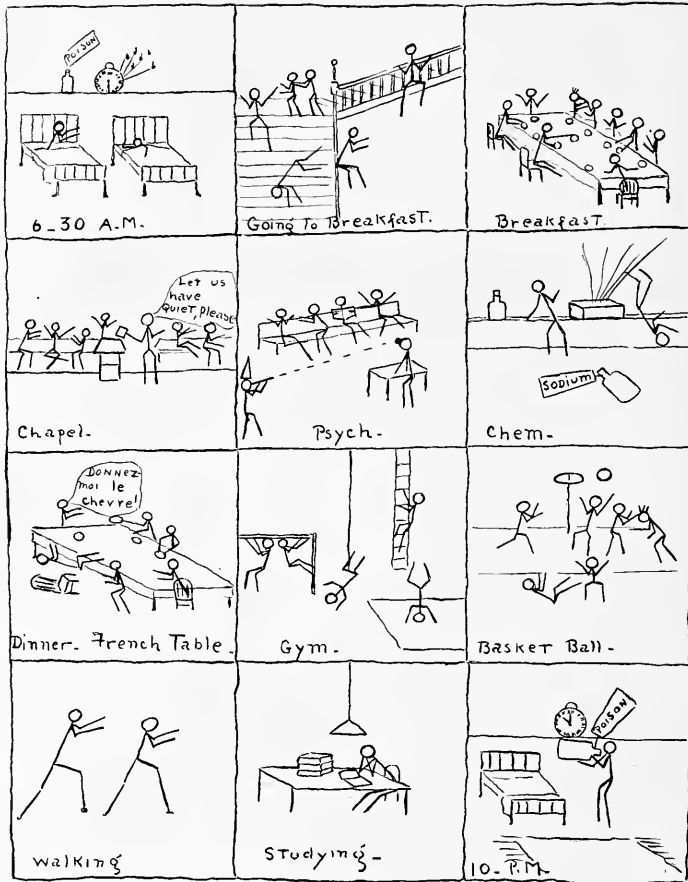 POISON
6-30 A.M.
Going To Breakfast.
Breakfast.
Let us
have
QUIET, please
Chapel-
Psych-
SODIUM
Chem-
DONNEZ
moi le
chevre!
Dinner- French Table-
Gym-
BASKET BALL-
Walking
STudying-
POISON
10- P.M-